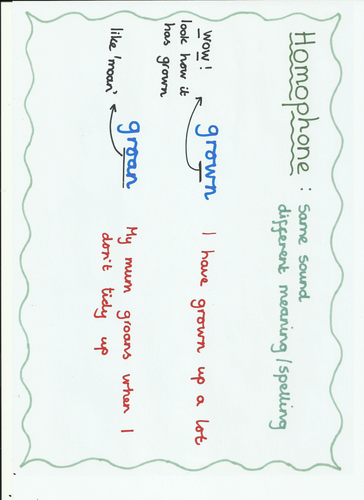 Homophone : Same sound
different meaning/spelling
wow!
look how it
has grown
grown
I have grown up a lot
like 'moan'
groan
My mum groans when I
don't tidy up